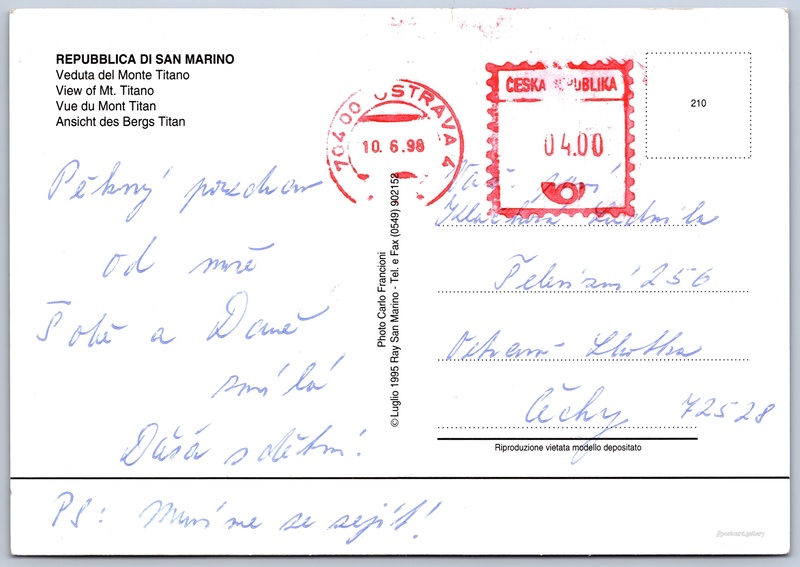 REPUBBLICA DI SAN MARINO
Veduta del Monte Titano
View of Mt. Titano
Vue du Mont Titan
Ansicht des Bergs Titan
70400 OSTRAVA 4
10.6.98
ČESKÁ REPUBLIKA
04.00
210
Pěkný pozdrav
od moře
Tobě a Daně
Dáša s dětmi!
PS: Musíme se sejít!
Photo Carlo Francioni
© Luglio 1995 Ray San Marino - Tel. e Fax (0549) 902152
Váž. paní
Ludmila
Televizní 256
Ostrava- Lhotka
Čechy 72528
Riproduzione vietata modello depositato
//postcard.gallery